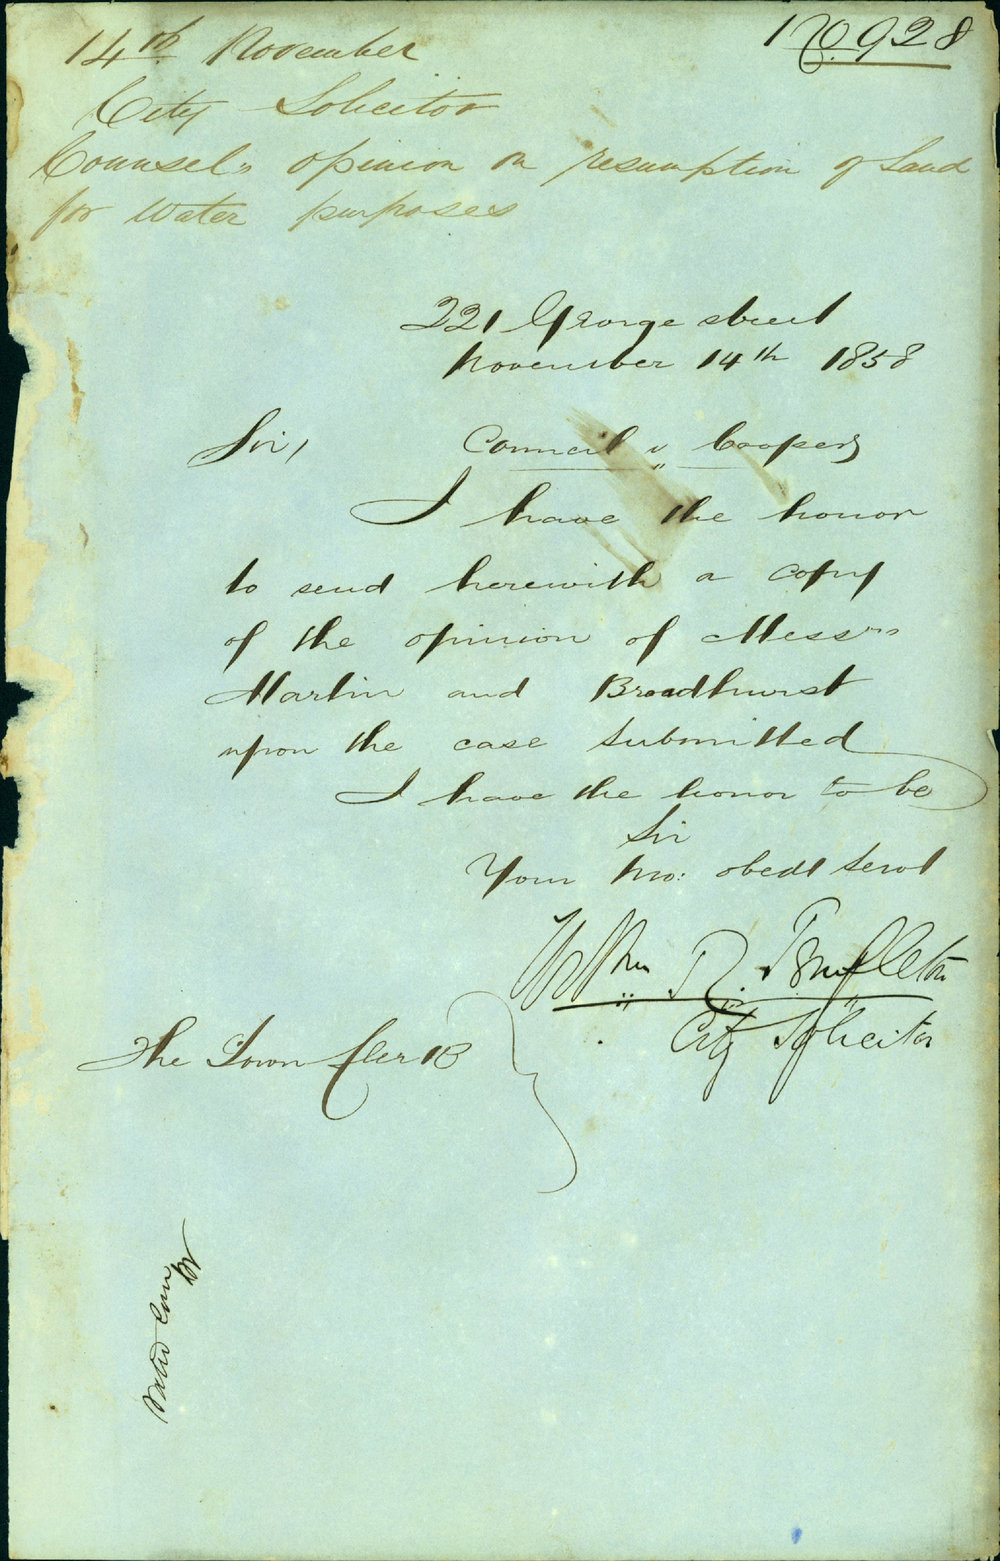 No. 928
14th November
City Solicitor
Counsel's opinion on resumption of Land
for Water purposes
221 George street
November 14th 1858
Sir, Council v Cooper
I have the honor
to send herewith a copy
of the opinion of Messrs
Martin and Broadhurst
upon the case submitted
I have the honor to be
Sir
Your Mo: obedt Servt
R. Templeton
City Solicitor
The Town Clerk
Water Com